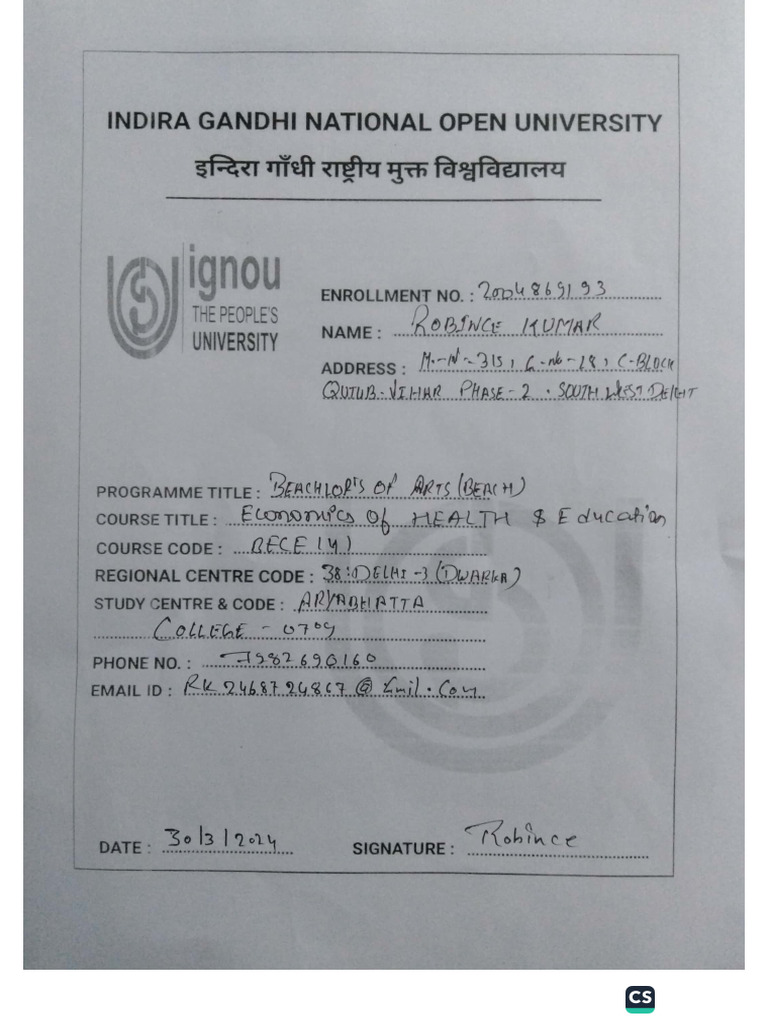 INDIRA GANDHI NATIONAL OPEN UNIVERSITY
इन्दिरा गाँधी राष्ट्रीय मुक्त विश्वविद्यालय
ignou
THE PEOPLE'S
UNIVERSITY
ENROLLMENT NO. : 2004869193
NAME : ROBINCE KUMAR
ADDRESS : H.-N-315, G-No-18, C-BLOCK
QUTUB-VIHAR PHASE-2. SOUTH WEST DELHI
PROGRAMME TITLE : BEACHLOR'S OF ARTS (BEACH)
COURSE TITLE : ECONOMICS OF HEALTH & Education
COURSE CODE : BECE 141
REGIONAL CENTRE CODE : 38:DELHI-3 (DWARKA)
STUDY CENTRE & CODE : ARYABHATTA
COLLEGE - 0709
PHONE NO. : 7982690160
EMAIL ID : RK2468724867@
DATE : 30/3/2024
SIGNATURE : Robince
CS